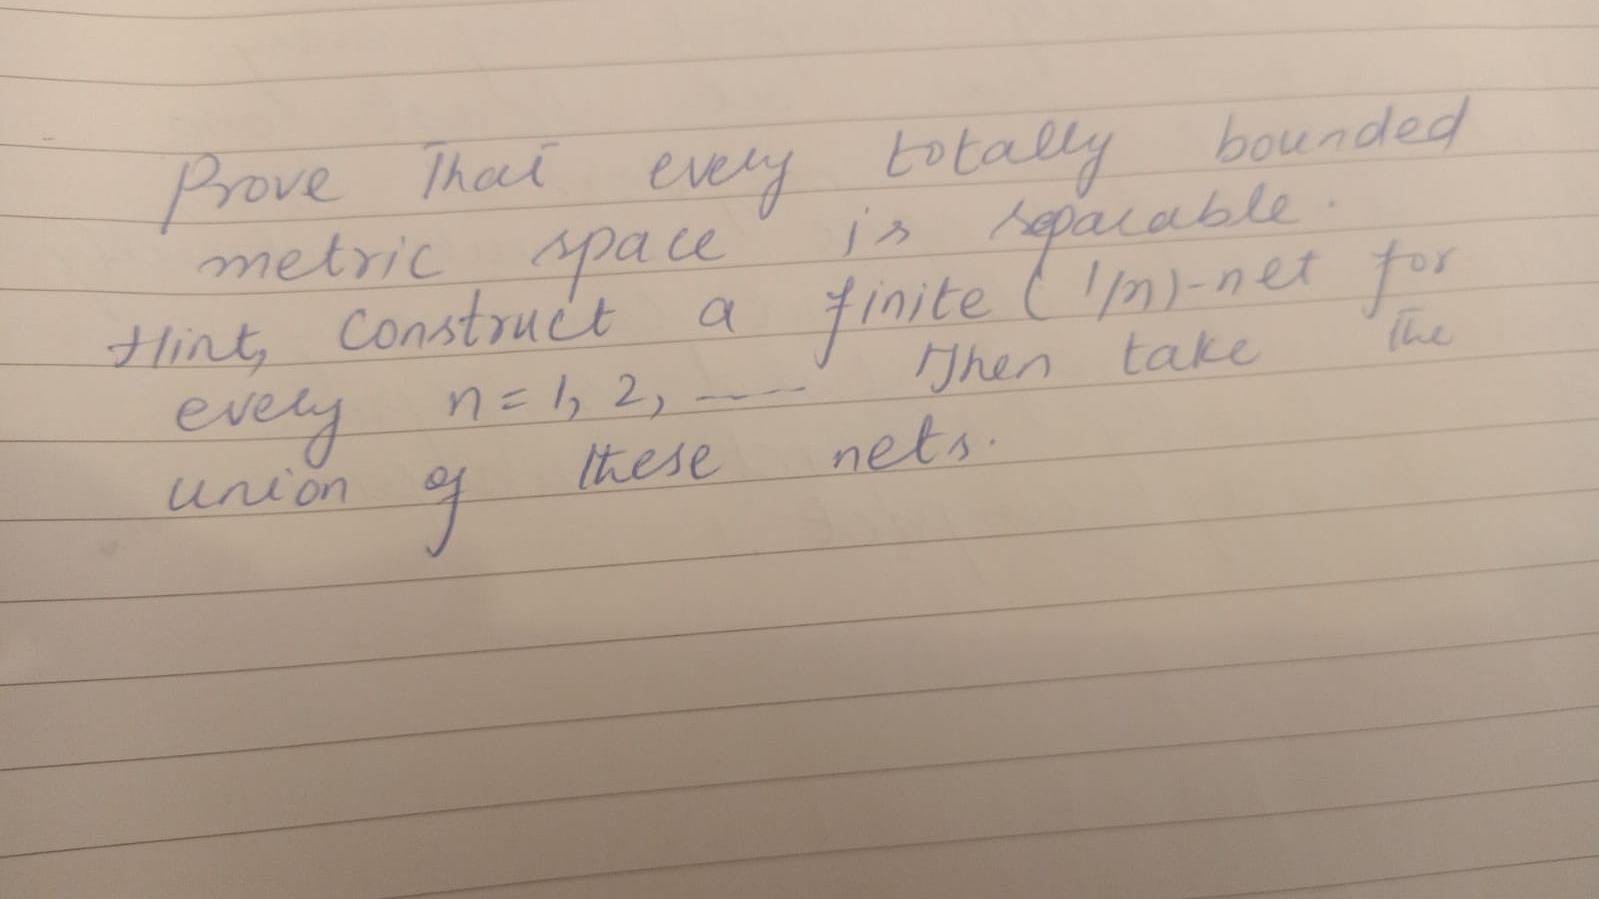 Prove That every totally bounded
metric space is separable.
Hint, Construct a finite (1/n)-net for
every n = 1, 2, ---- Then take The
union of these nets.